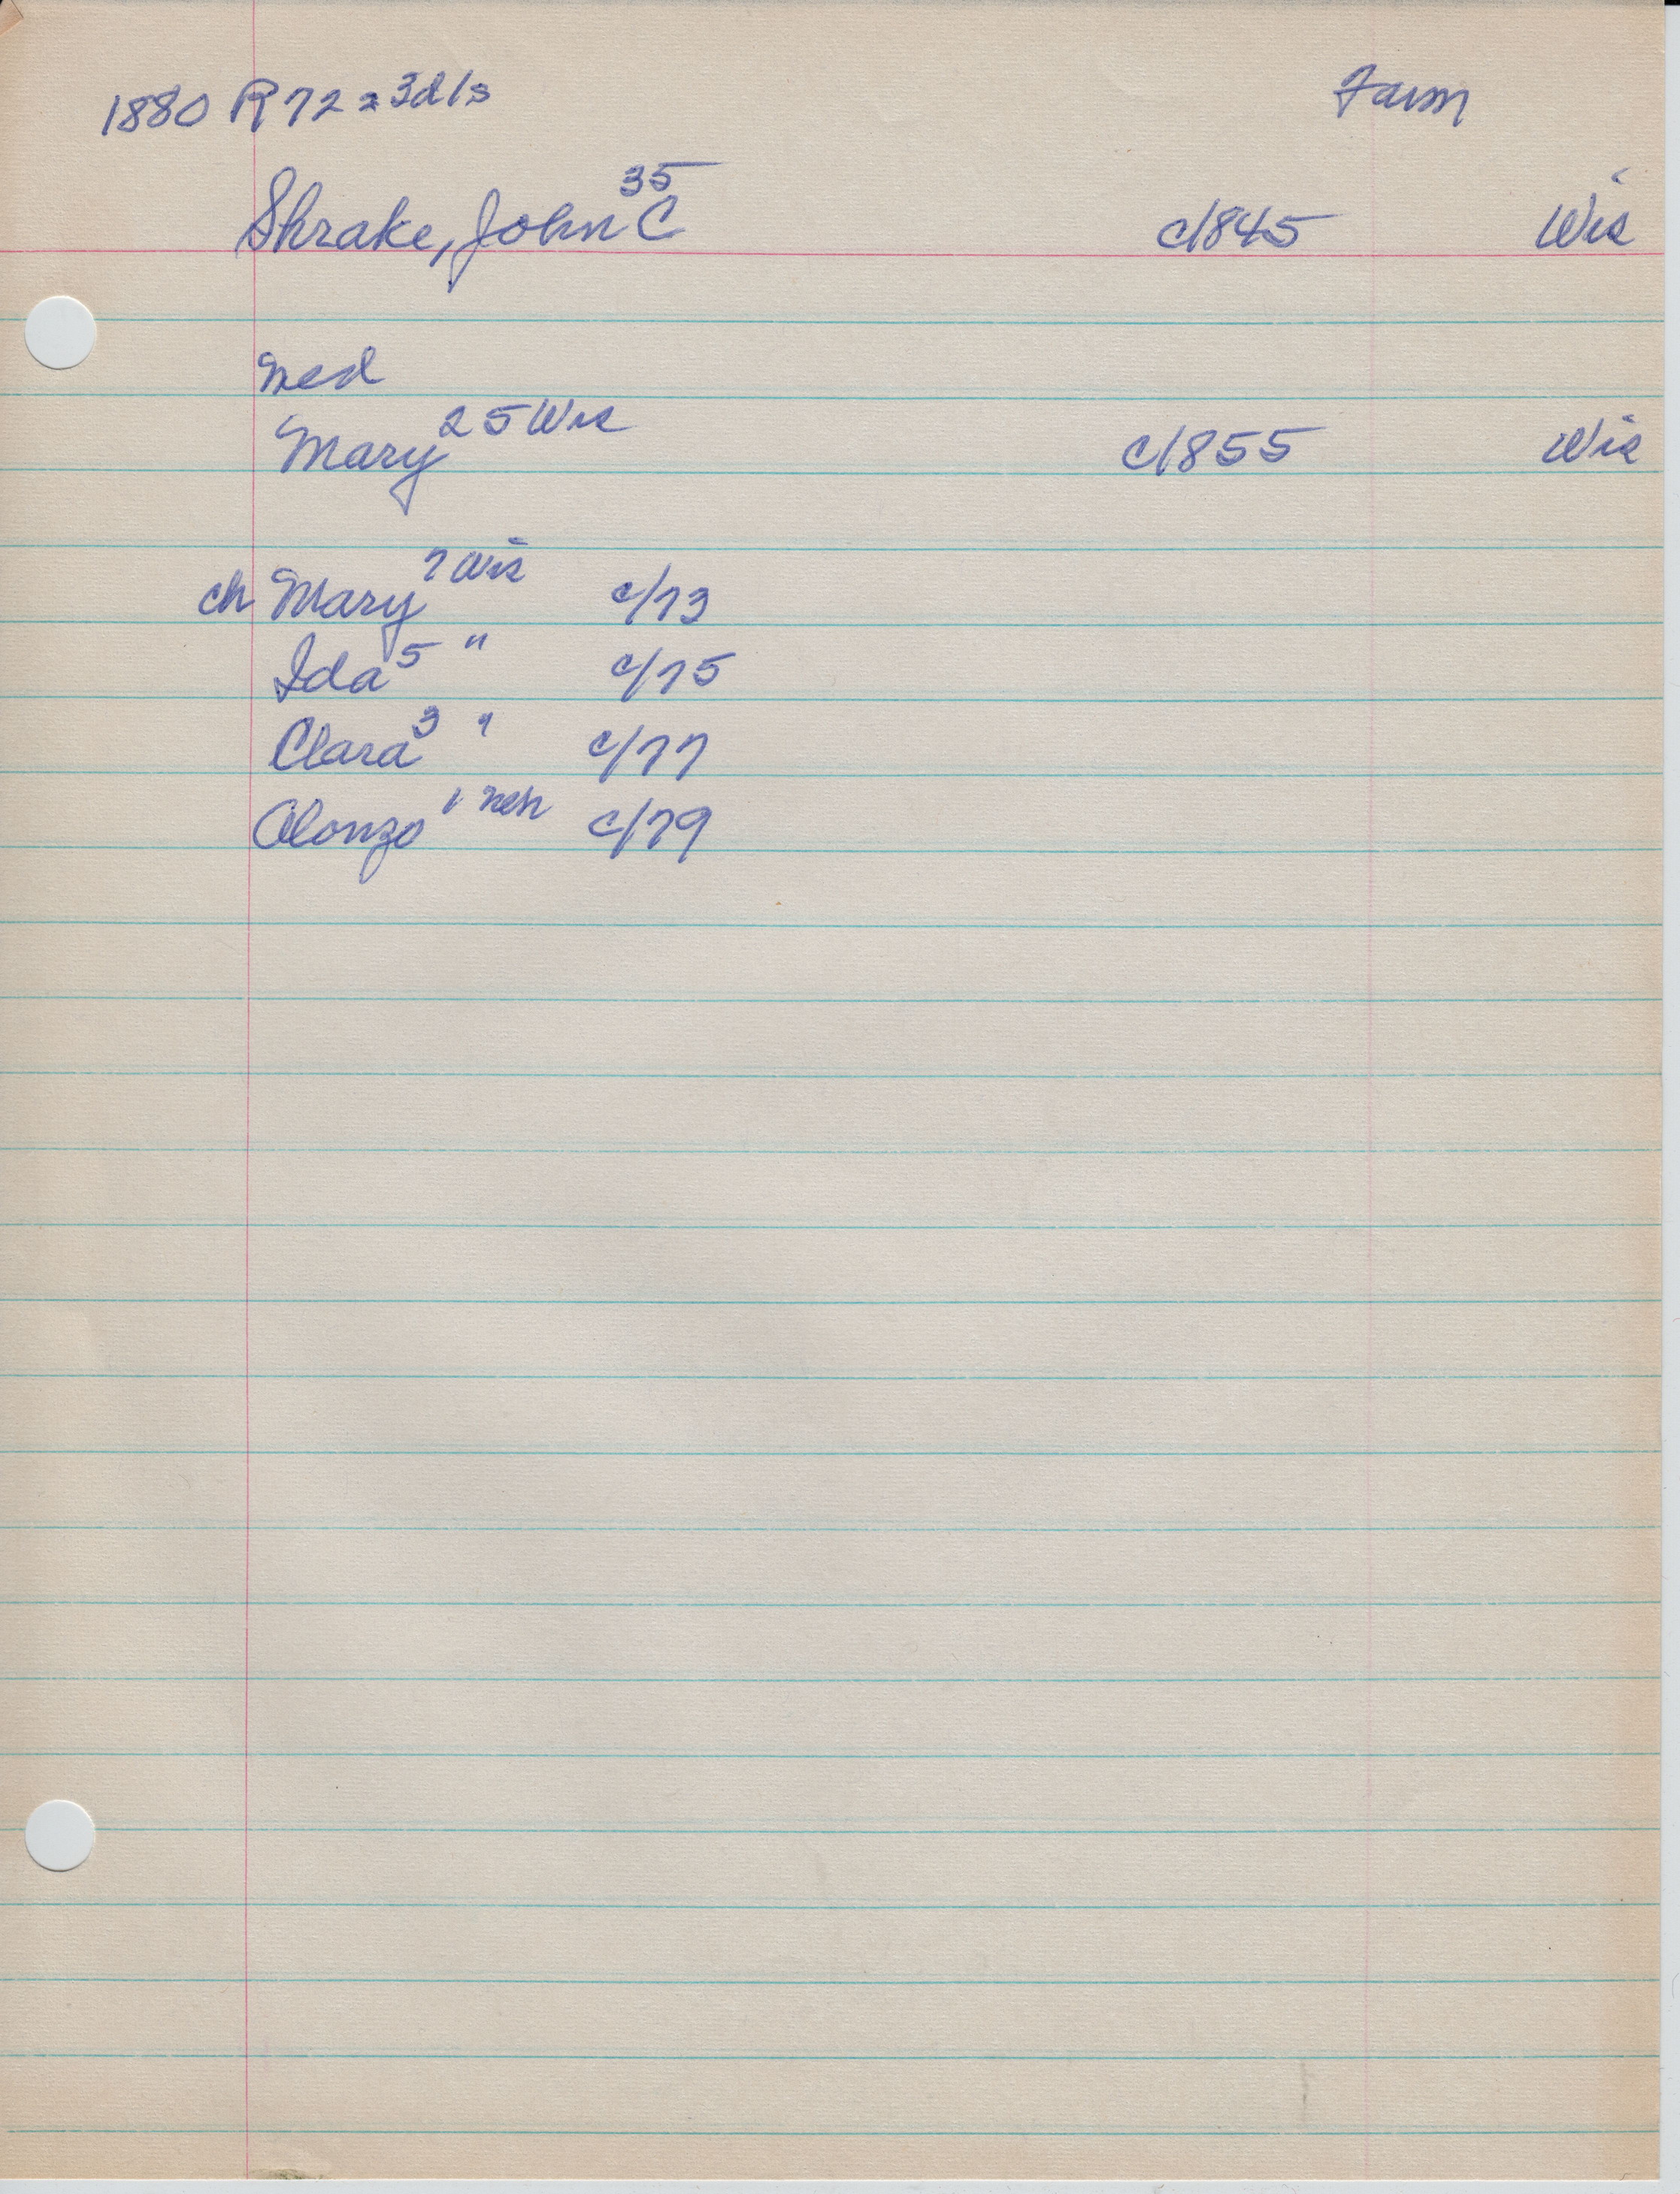 1880 R 72 = 3d/s Farm
Shrake, John C 35 c/845 Wis
Med
Mary 25 Wis c/855 Wis
ch Mary 7 Wis c/73
Ida 5 " c/75
Clara 3 " c/77
Alonzo 1 Neb c/79